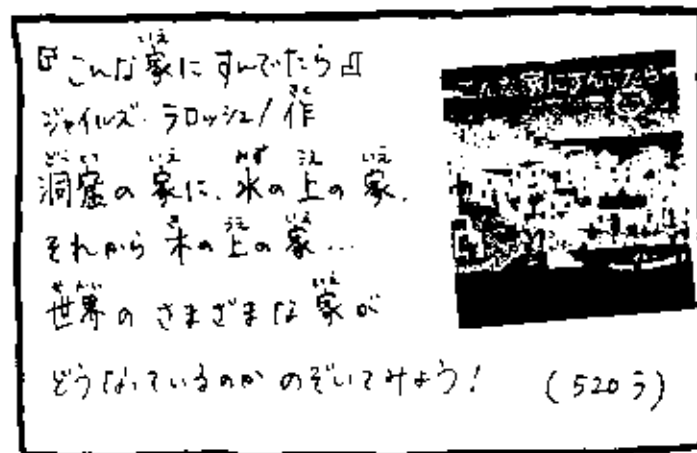 『こんな家にすんでたら』
ジャイルズ・ラロッシュ/作
洞窟の家に、水の上の家、
それから木の上の家…
世界のさまざまな家が
どうなっているのかのぞいてみよう!
(520ラ)
こんな家にすんでたら